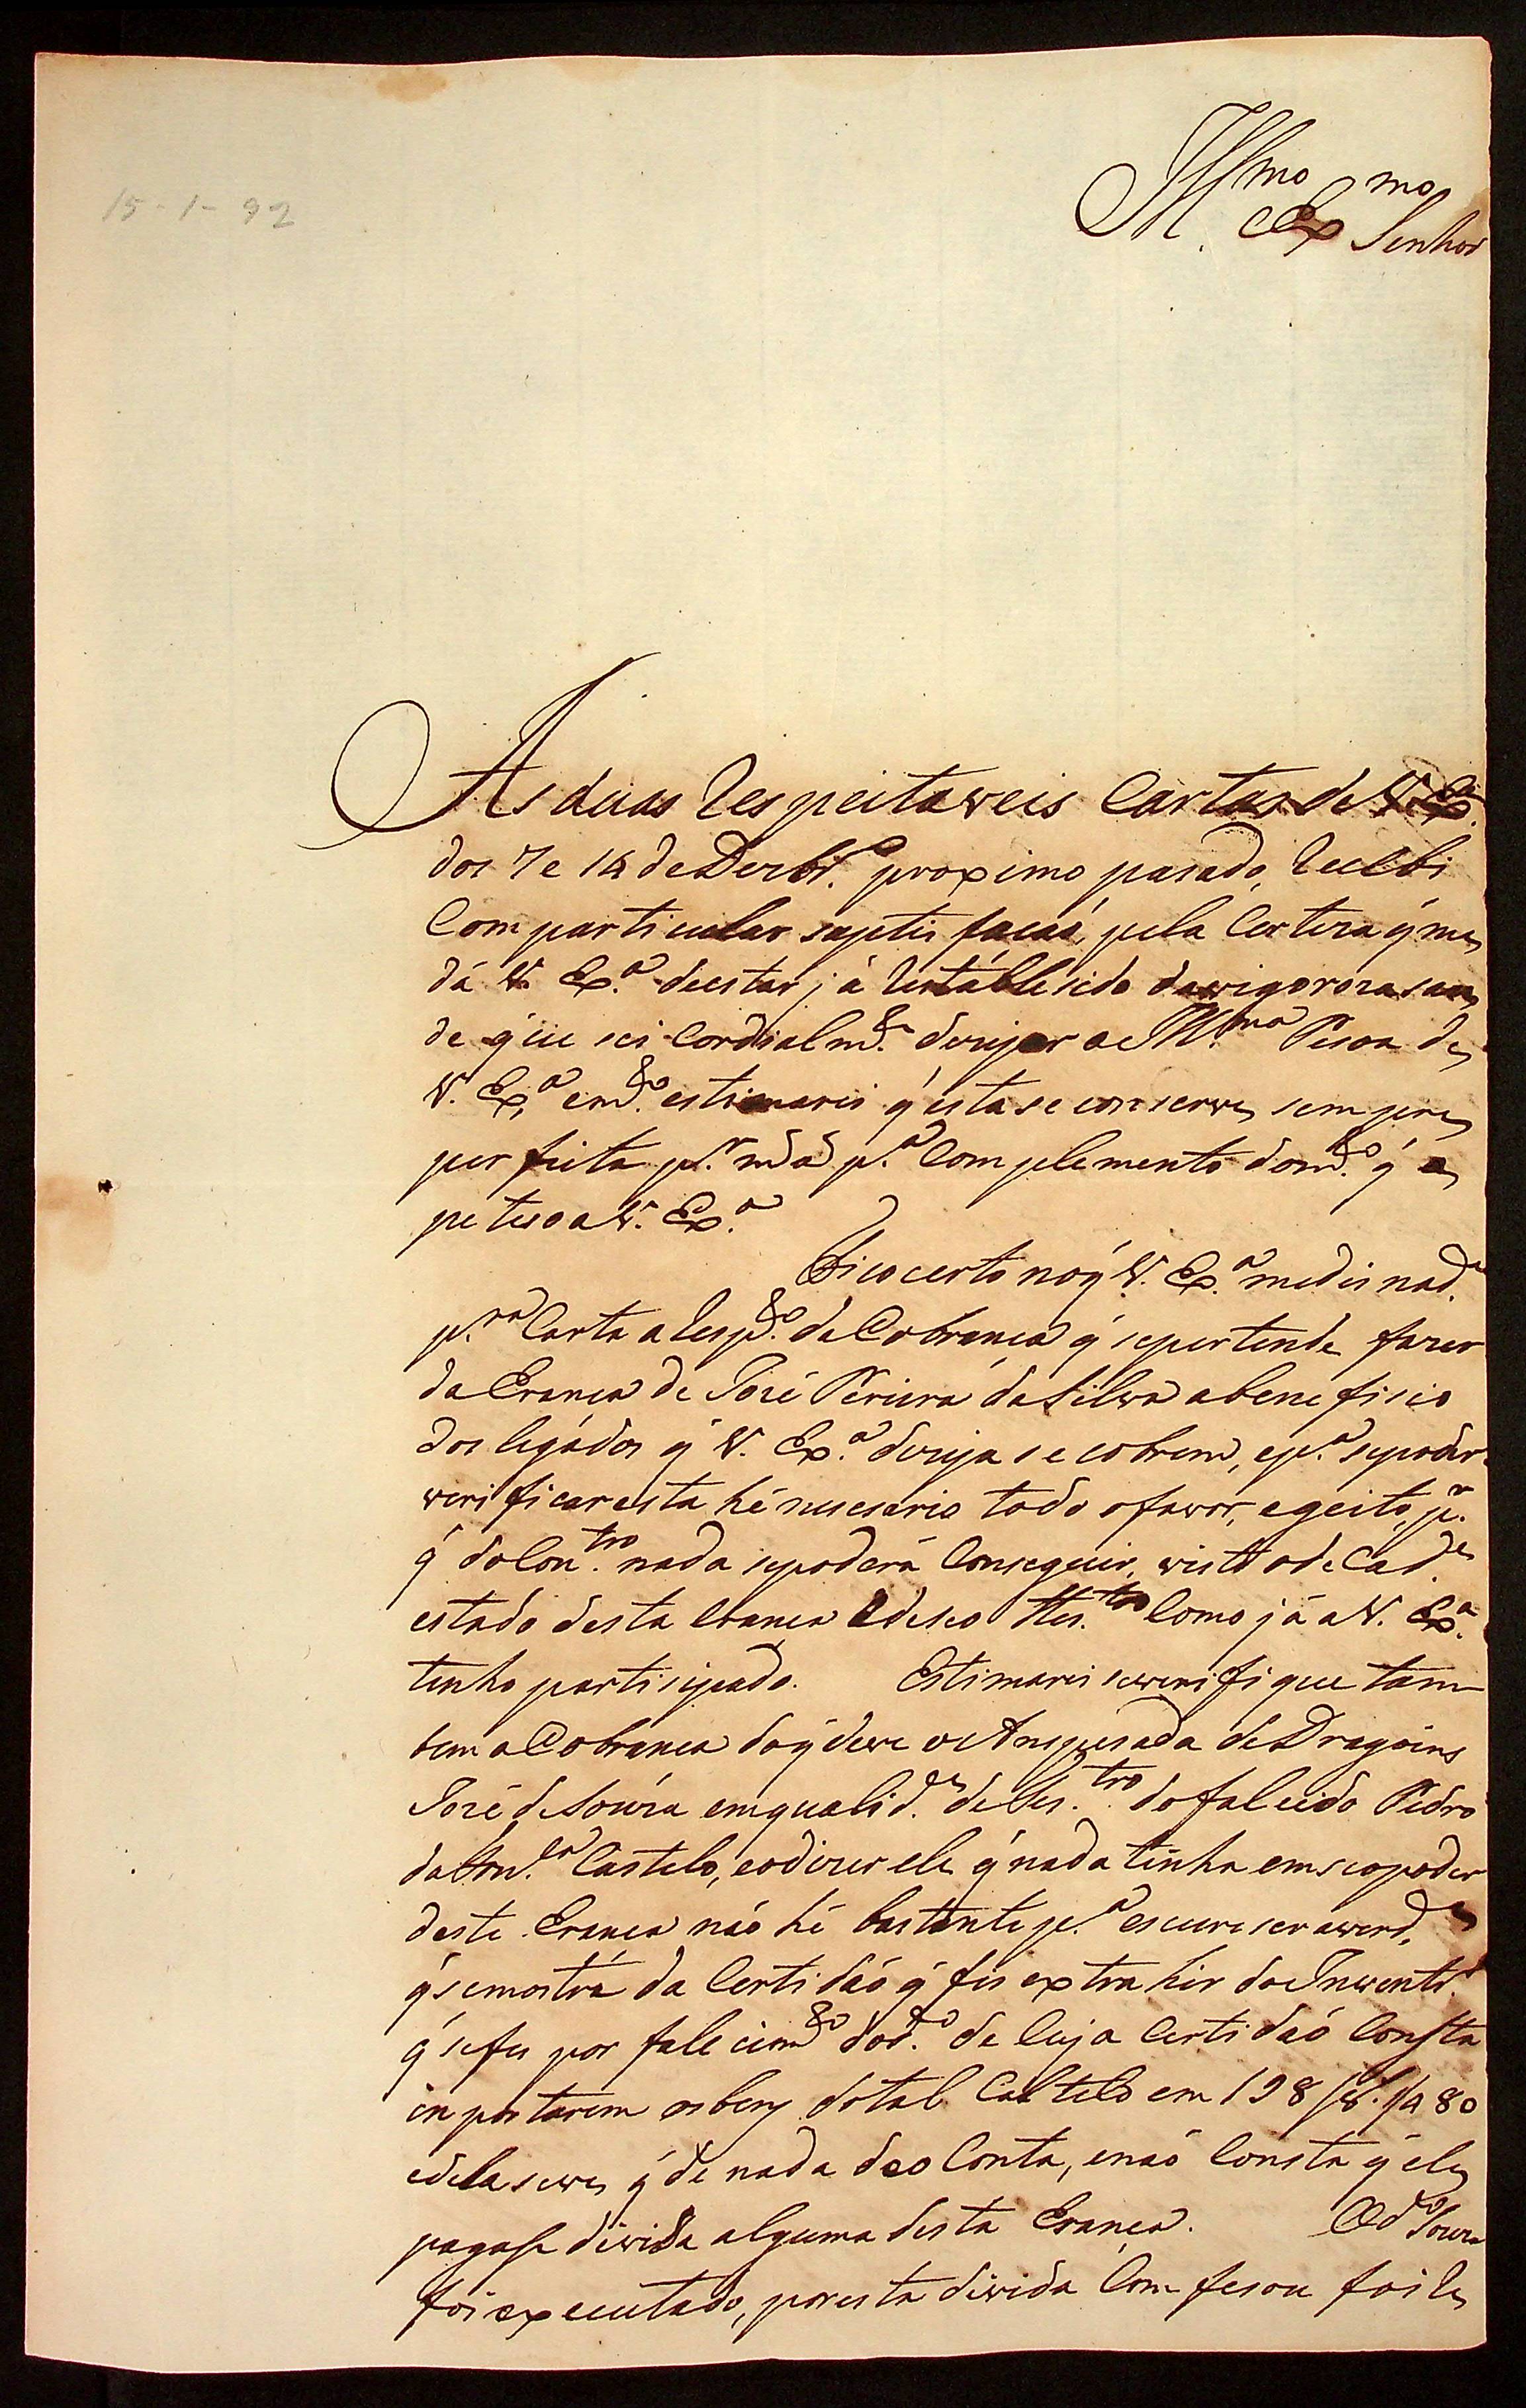 15-1-92
Ill.mo Ex.mo Senhor
As duas Respeitaweis Cartas de V. Ex.
dos 7 e 14 de Dezbr.º proximo pasado, Recebi
Com particular saptis façaó, pela Certeza q̃ me
dá V. Ex.ª deestar já Restablesido da wigoroza sau
de q̃ eu sei Cordialm.te dezejar a Ill.ma Pesoa de
V. Ex.ª em.to estimarei q̃ esta se conserwe sempre
perfeita p.r m.ª p.ª Complemento dom.to q̃ a
peteso a V. Ex.ª
Fico certo no q̃ V. Ex.ª me dis na d.ª
p.ra Carta a Resp.to da Cobrança q̃ sepertende fazer
da Erança de Jozé Periera da Silwa a benefisio
dos legádos q̃ V. Ex.ª dezeja se cobrem, e p.ª sepoder
werificar esta hé nesesario todo ofawor, e geito, p.r
q̃ do Con.tro nada sepoderá Conseguir, wisto ode Cad.e
estado desta Erança e deseo Tes.tro Como já a V. Ex.ª
tenho partisipado. Estimarei sewerifique tam
bem a Cobrança do q̃ dewe o Anspesada de Dragoins
Jozé de Souza em qualid.e de Tes.tro do falecido Pedro
da Castelo, eodizer ele q̃ nada tinha em seo poder
deste Erança náo hé bastante p.ª escureser a werd.e
q̃ semostra da Certidáo q̃ fis extrahir do Inwentr.º
q̃ sefes por falecim.to dod.to de Cuja Certidaó Consta
inportarem os bens dotal Castelo em 198/8.ªs/4 80
edela sewe q̃ de nada deo Conta, enaó Consta q̃ ele
pagase diwida alguma desta Erança. Od.º Souza
foi executado, por esta diwida Comfesou foi Re